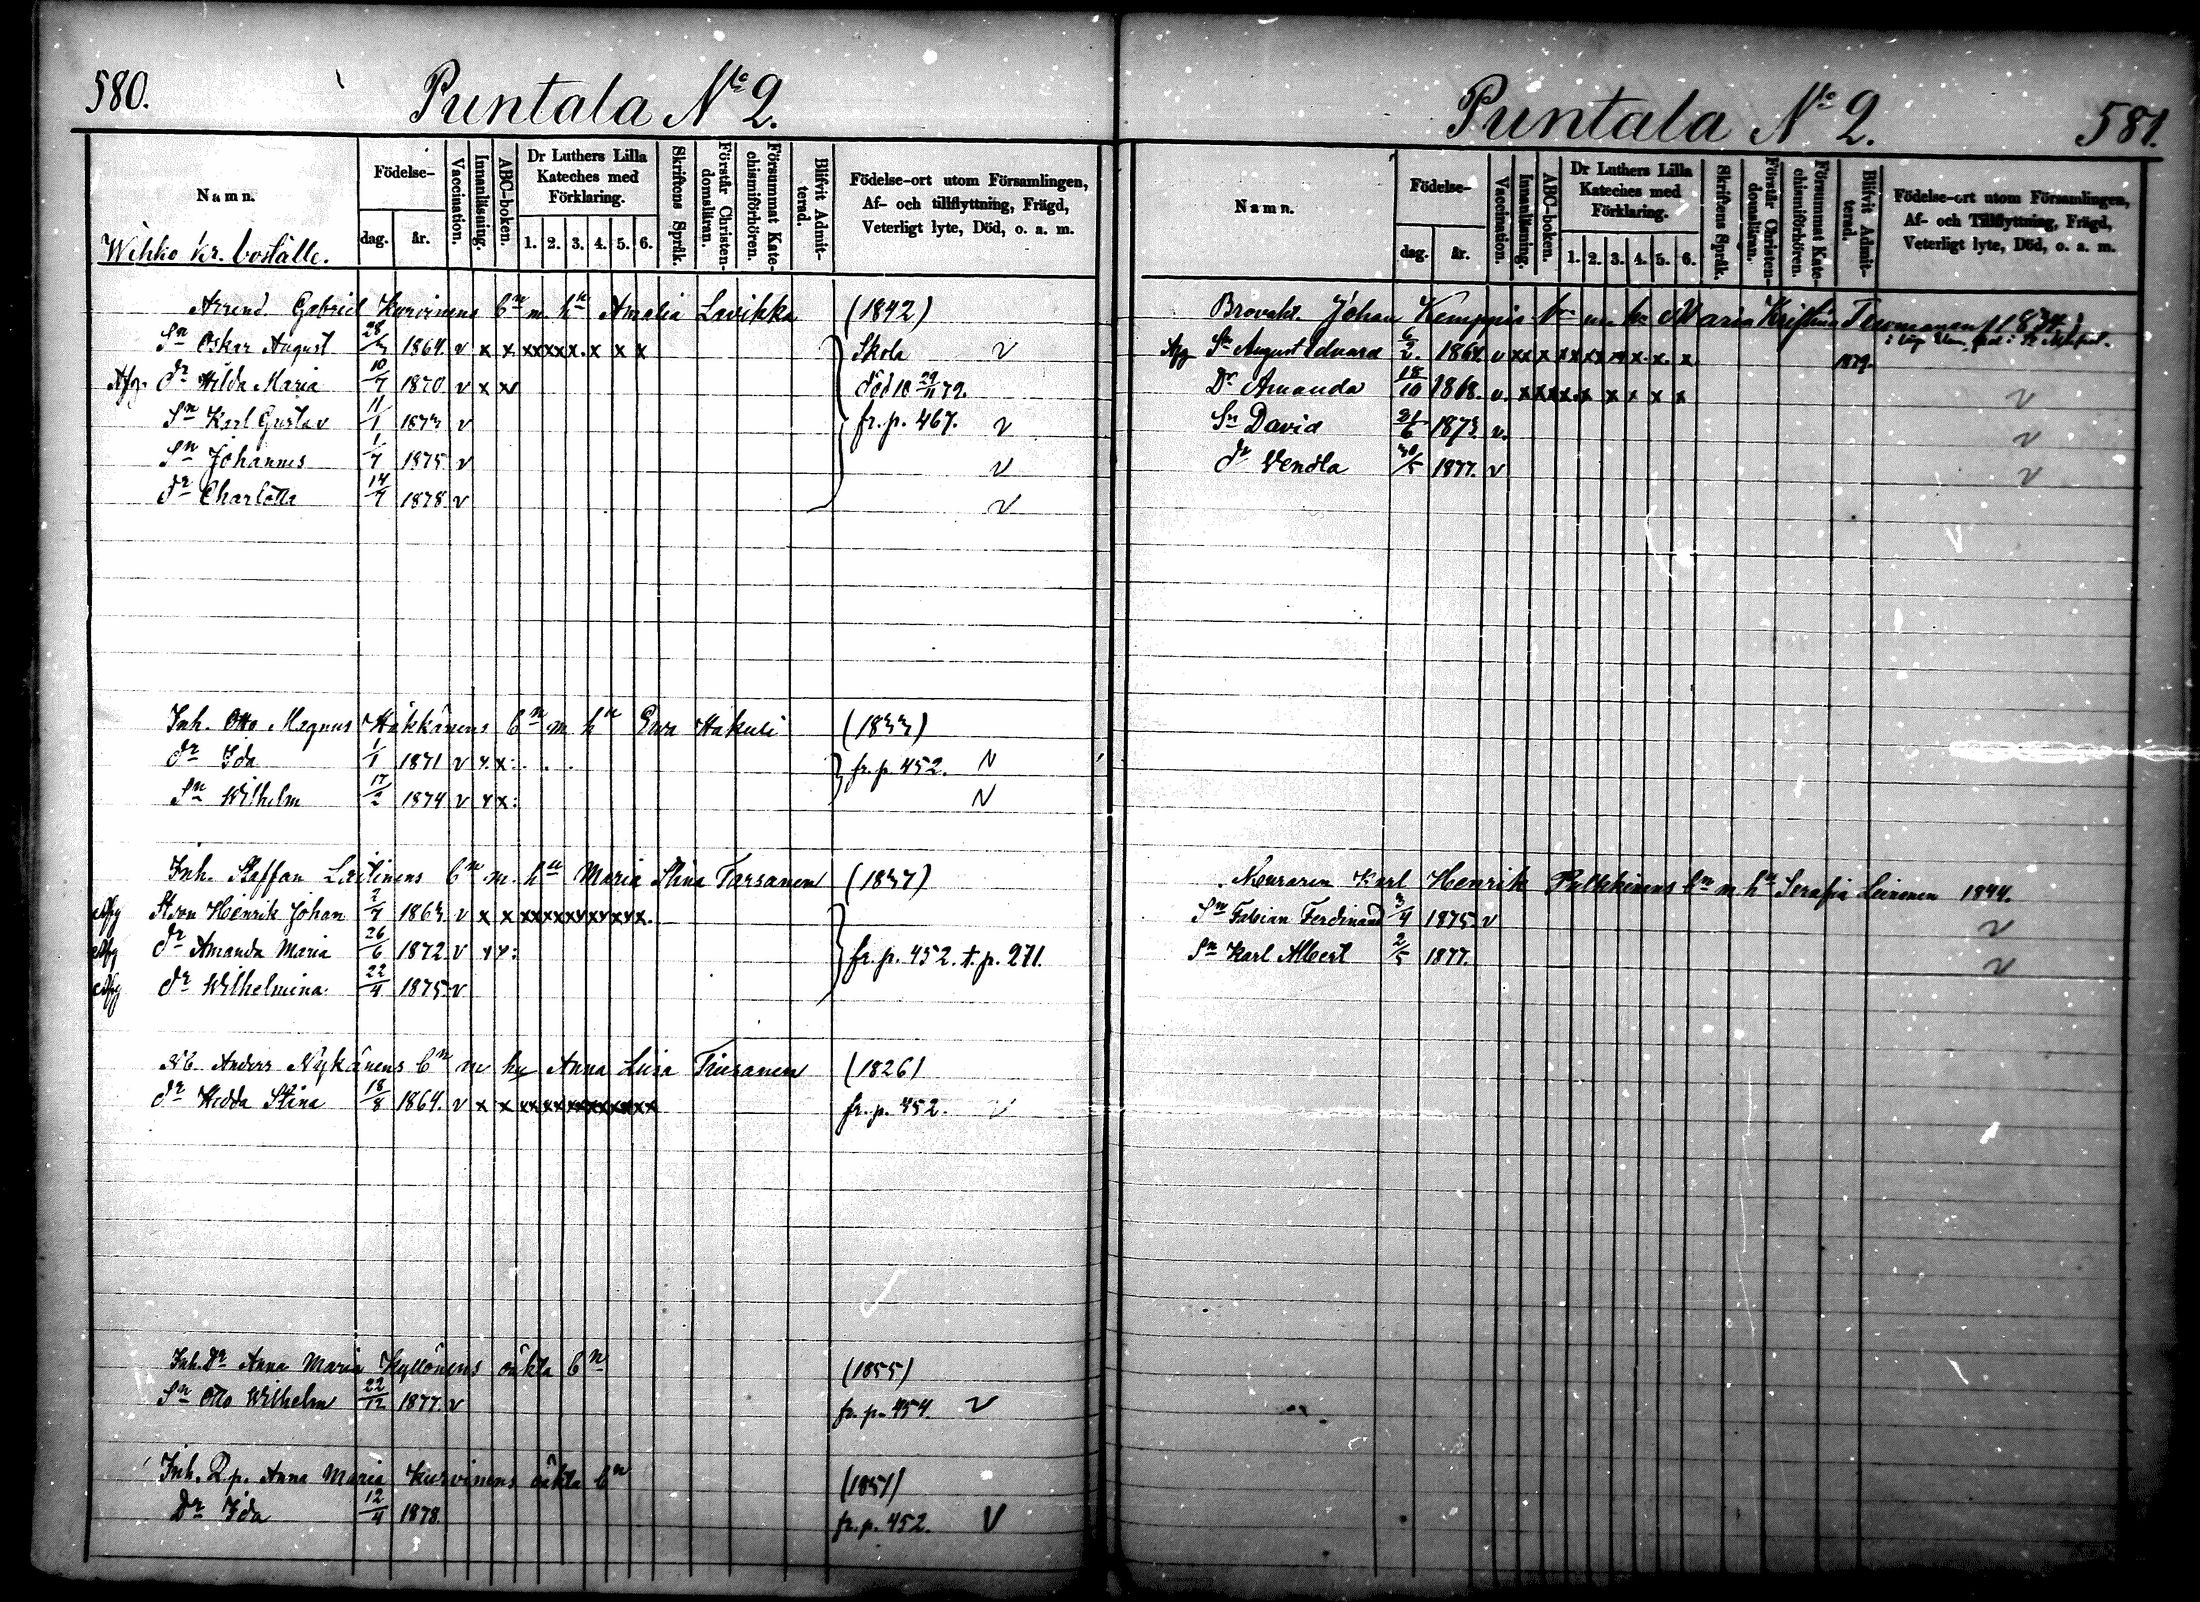 580.
Puntala No 2.
Namn.
Födelse-
dag.
år.
Vaccination.
Innanläsning.
ABC-boken.
Dr Luthers Lilla Kateches med Förklaring.
1. 2. 3. 4. 5. 6.
Skriftens Språk.
Förstår Christen-domsläran.
Försummat Kate-chismiförhören.
Blifvit Admit-terad.
Födelse-ort utom Församlingen, Af- och tillflyttning, Frägd, Veterligt lyte, Död, o. a. m.
Wihko kr. boställe.
Arrend. Gabriel Kurvinens bn m hn Amalia Lavikka (1842)
Sn Oskar August 28/3 1864. v x x x x x x x. x x x Skola v
Afg. dr Hilda Maria 10/7 1870 v x x död 10 29/11 79.
Sn Karl Gustav 11/1 1873 v fr. p. 467. v
Sn Johannes 1/7 1875 v v
dr Charlotta 14/7 1878 v v
Inh. Otto Magnus Häkkänens bn m hn Ewa Hakuli (1833)
dr Ida 1/1 1871 v x x: . . fr. p. 452. v
Sn Wilhelm 17/2 1874 v x x: v
Inh. Staffan Laitinens bn m. hn Maria Stina Tarsanen (1837)
Afg Stson Henrik Johan 2/7 1863 v x x x x x x x x x x x x.
Afg dr Amanda Maria 26/6 1872 v x x: fr. p. 452. t. p. 271.
Afg dr Wilhelmina 22/4 1875 v
Nb. Anders Nykänens bn m hu Anna Lisa Tiusanen (1826)
dr Hedda Stina 18/8 1864. v x x x x x x x x x x x x fr. p. 452. v
Inh. Dr Anna Maria Kyllönens oäkta bn (1855)
Sn Otto Wilhelm 22/12 1877. v fr. p. 454. v
Inh. Qp. Anna Maria Kurvinens oäkta bn (1851)
Dr Ida 12/4 1878. fr. p. 452. v
Puntala No 2.
581.
Namn.
Födelse-
dag.
år.
Vaccination.
Innanläsning.
ABC-boken.
Dr Luthers Lilla Kateches med Förklaring.
1. 2. 3. 4. 5. 6.
Skriftens Språk.
Förstår Christen-domsläran.
Försummat Kate-chismiförhören.
Blifvit Admit-terad.
Födelse-ort utom Församlingen, Af- och Tillflyttning, Frägd, Veterligt lyte, Död, o. a. m.
Brovakt. Johan Kemppis bn m hn Maria Kristina (1834)
Afg Sn August Eduard 6/2. 1864. v x x x x x x x x. x. x 1879.
Dr Amanda 18/10 1868. v. x x x x x x x x x v
Sn David 21/6 1873. v. v
dr Vendla 30/5 1877. v v
Muraren Karl Henrik Pulkkinens bn m hn Serafia Leinonen 1844.
Sn Fabian Ferdinand 3/4 1875. v v
Sn Karl Albert 2/5 1877. v